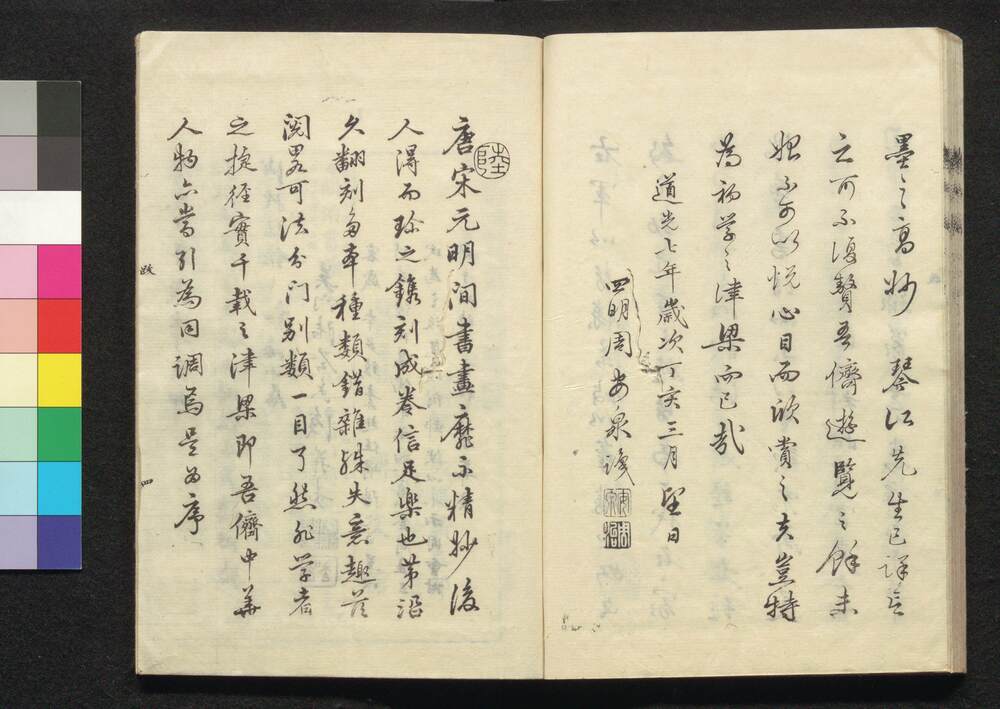 墨之高妙琴江先生已詳言
之可不復贅吾儕遊覽之餘未
始不可以悦心目而欣賞之夫豈特
為初学之津梁而已哉
道光七年歳次丁亥三月望日
四明周安泉識
陸
唐宋元明間書畫靡不精妙後
人淂而珍之鐫刻成卷信足樂也第沿
久翻刻多本種類錯雜殊失意趣茲
閲畧可法分门别類一目了然非学者
之捷徑實千載之津梁即吾儕中華
人物亦當引為同調焉是为序
敘
四